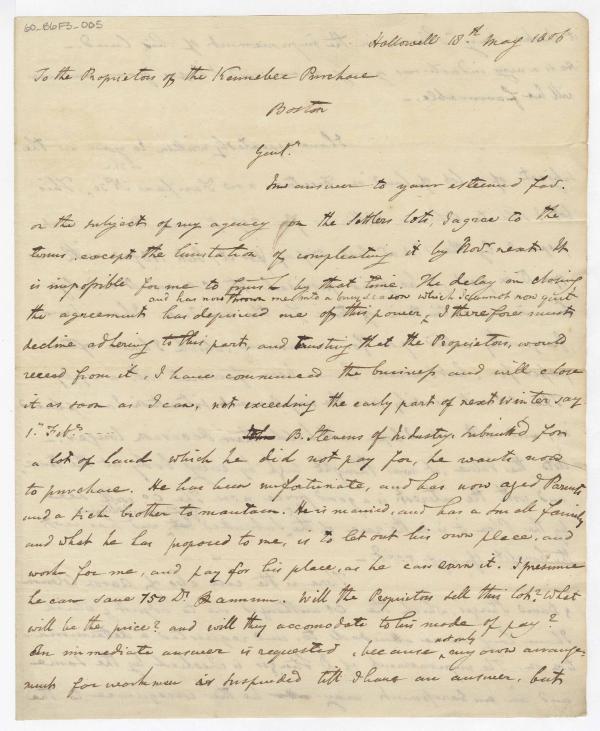 60-B6F3-005
Hallowell 18th May 1806
To the Proprietors of the Kennebec Purchase
Boston
Gentn
In answer to your esteemed fav.
on the subject of my agency on the settlers lots, I agree to the
terms except the limitation of compleating it by Novr next. It
is impossible for me to finish by that time. The delay in closing
and has now thrown me into a busy season which I cannot now quit
the agreement has deprived me of this power, I therefore must
decline adhering to this part, and trusting that the Proprietors, would
receed from it, I have commenced the business and will close
it as soon as I can, not exceeding the early part of next winter say
1st Feby
B. Stevens of industry submitted for
a lot of land which he did not pay for, he wants now
to purchase. He has been unfortunate, and has now aged Parents
and a sick brother to maintain. He is married, and has a small family
and what he has proposed to me, is to let out his own place, and
work for me, and pay for his place, as he can earn it. I presume
he can save 150 Ds annum. Will the Proprietors sell this lot? What
will be the price? and will they accomodate to his mode of pay?
An immediate answer is requested, because
not only
my own arrange-
ments for workmen is suspended till I have an answer, but